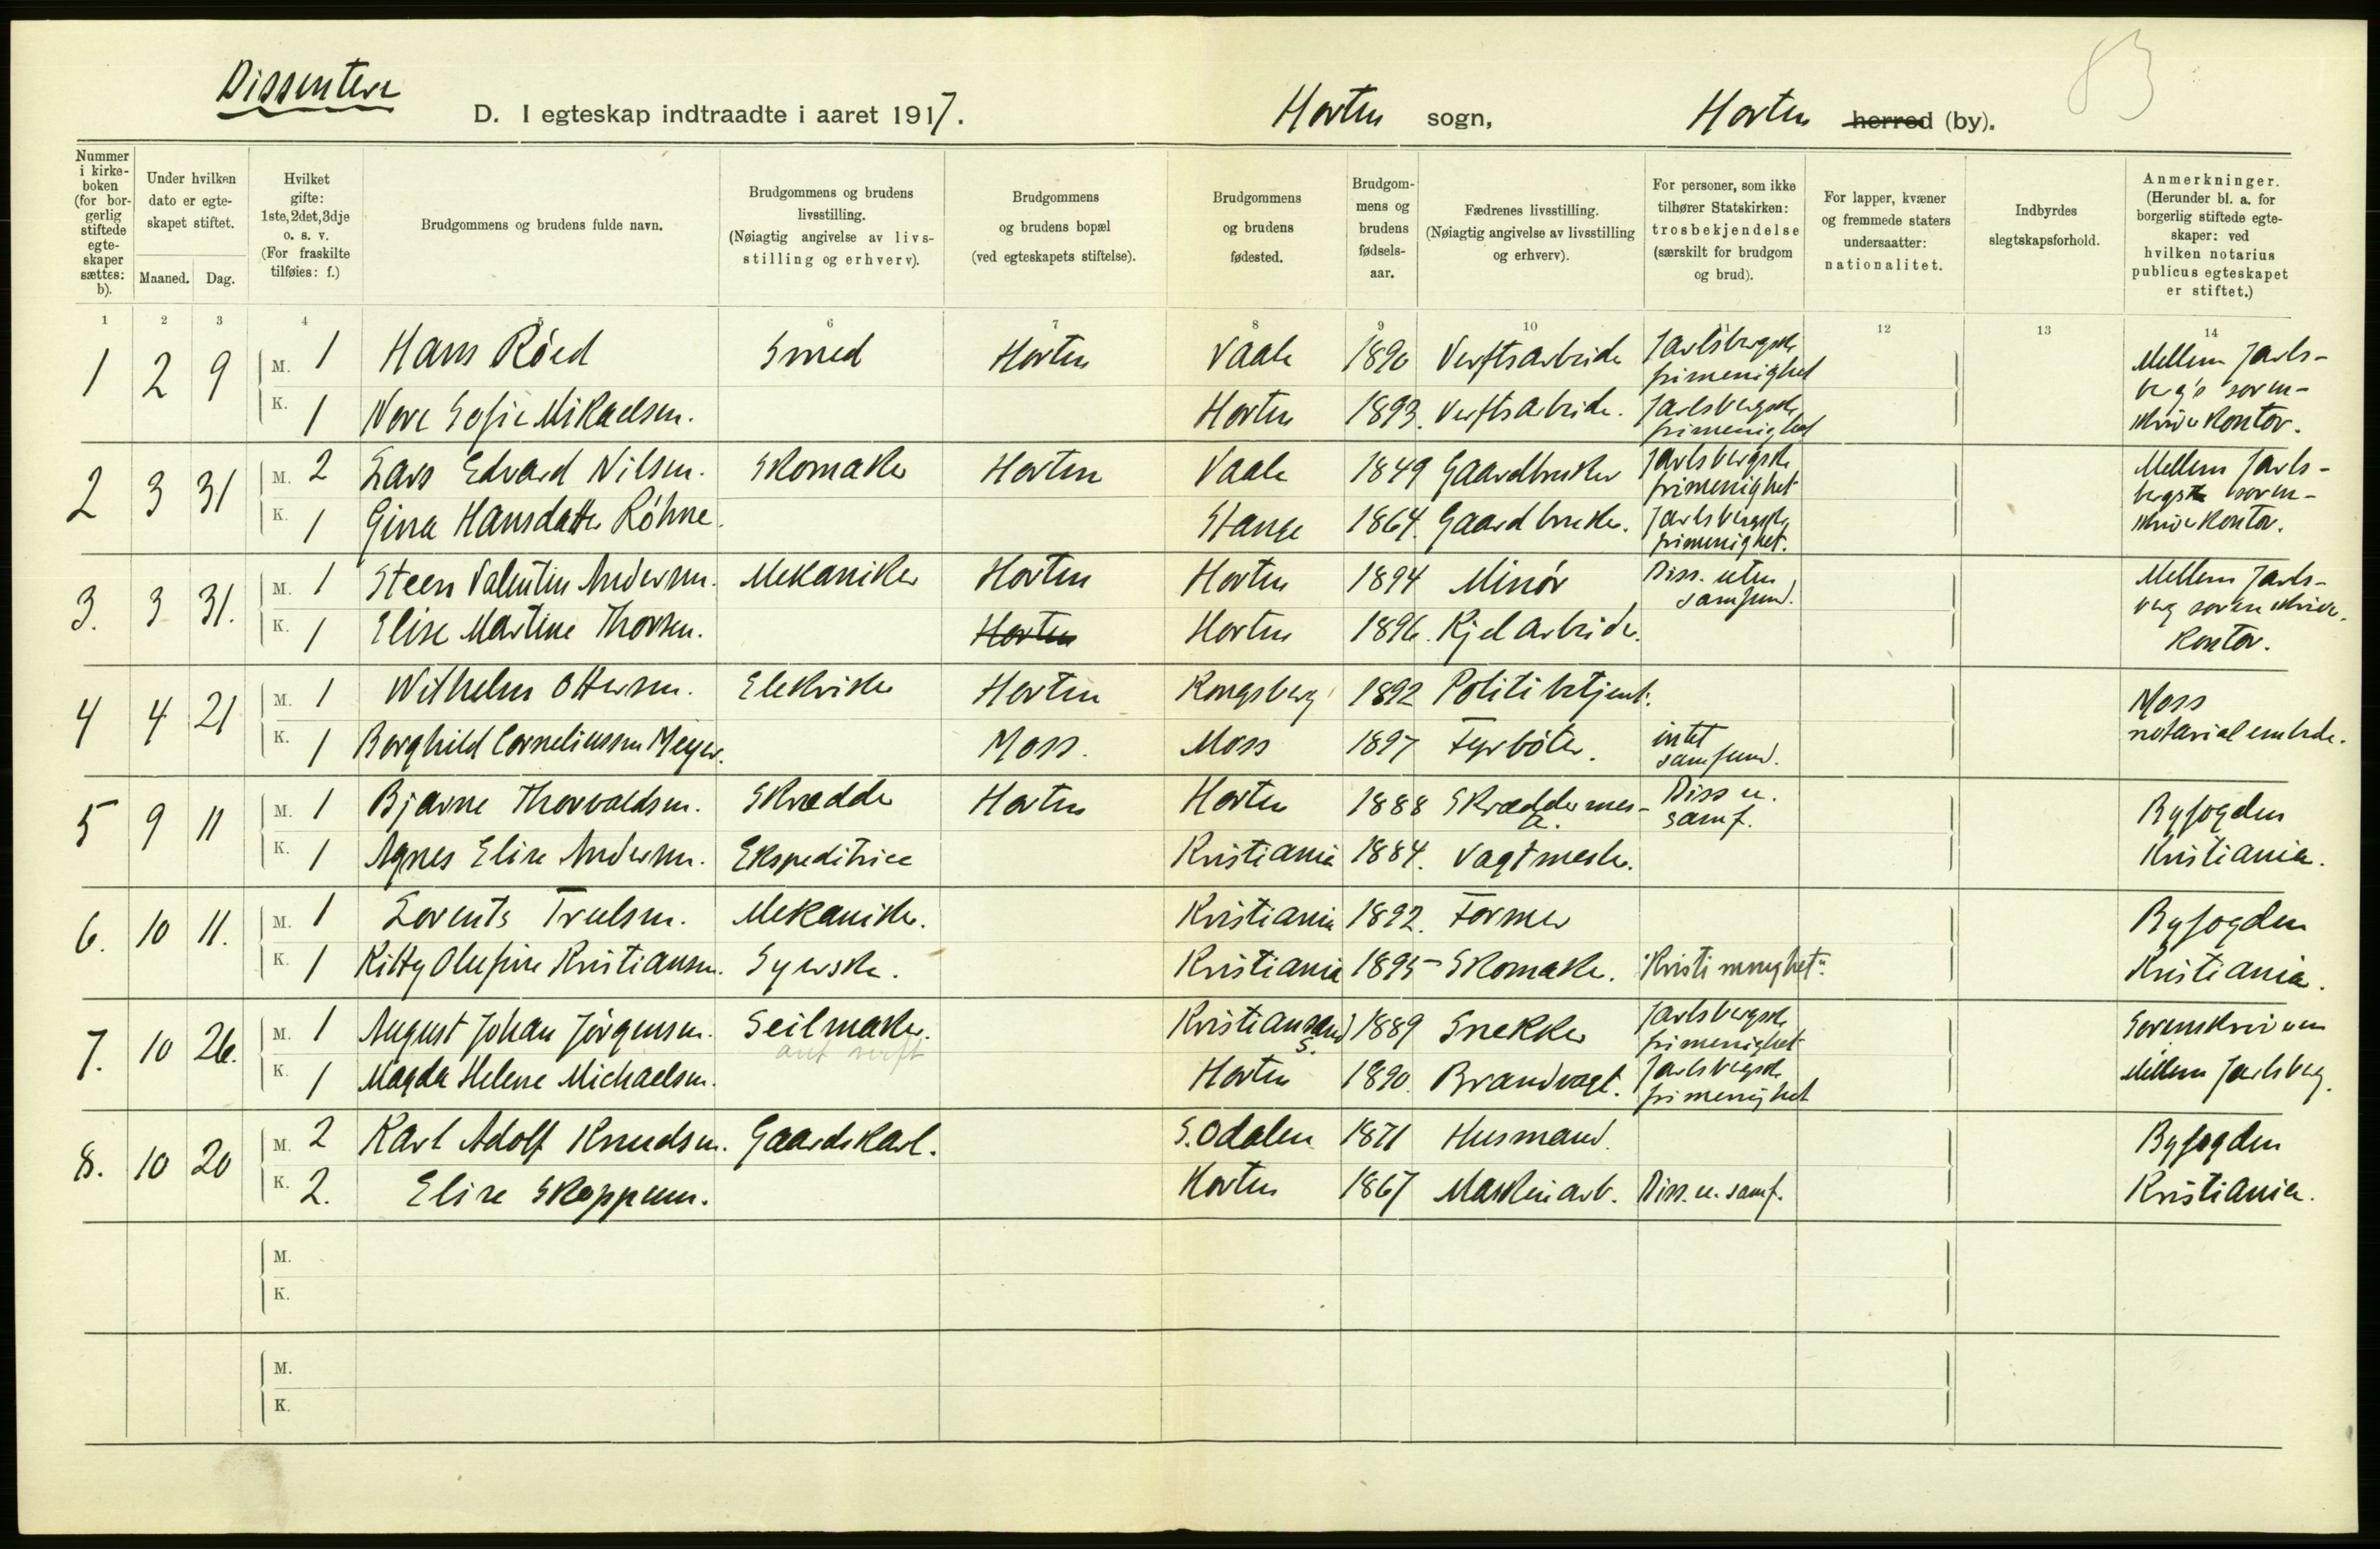 83
Dissentere
D. I egteskap indtraadte i aaret 1917.
Horten sogn,
Horten herred (by).
Nummer i kirkeboken (for borgerlig stiftede egteskaper sættes: b).
Under hvilken dato er egteskapet stiftet.
Maaned. Dag.
Hvilket gifte: 1ste, 2det, 3dje o. s. v. (For fraskilte tilføies: f.)
Brudgommens og brudens fulde navn.
Brudgommens og brudens livsstilling. (Nøiagtig angivelse av livsstilling og erhverv).
Brudgommens og brudens bopæl (ved egteskapets stiftelse).
Brudgommens og brudens fødested.
Brudgommens og brudens fødselsaar.
Fædrenes livsstilling. (Nøiagtig angivelse av livsstilling og erhverv).
For personer, som ikke tilhører Statskirken: trosbekjendelse (særskilt for brudgom og brud).
For lapper, kvæner og fremmede staters undersaatter: nationalitet.
Indbyrdes slegtskapsforhold.
Anmerkninger. (Herunder bl. a. for borgerlig stiftede egteskaper: ved hvilken notarius publicus egteskapet er stiftet.)
1 2 3 4 5 6 7 8 9 10 11 12 13 14
1 2 9 M. 1 Hans Röed Smed Horten Vaale 1890 Verftsarbeider Jarlsbergske frimenighet Mellem Jarls-
berg's soren-
K. 1 Nora Sofie Mikaelsen. Horten 1893. Verftsarbeider. Jarlsbergske frimenighet skriverkontor.
2 3 31 M. 2 Lars Edvard Nilsen. Skomaker Horten Vaale 1849 Gaardbruker Jarlsbergske frimenighet Mellem Jarls-
bergs soren-
K. 1 Gina Hansdatter Röhne. Stange 1864. Gaardbruker. Jarlsbergske frimenighet. skriverkontor.
3. 3 31. M. 1 Steen Valentin Andersen. Mekaniker Horten Horten 1894 Minör Diss. uten samfund. Mellem Jarls-
berg sorenskriver.
K. 1 Elise Martine Thorsen. Horten Horten 1896. Kjelarbeider. Kontor.
4 4 21 M. 1 Wilhelm Ottersen. Elekriker Horten Kongsberg 1892 Politibetjent. Moss
K. 1 Borghild Corneliussen Meyer. Moss. Moss 1897 Fyrböter. intet samfund. notarialembede.
5 9 11 M. 1 Bjarne Thorvaldsen. Skrædder Horten Horten 1888 Skræddermes- Diss u. samf. Byfogden
K. 1 Agnes Elise Andersen. Ekspeditrice Kristiania 1884. Vagtmester. Kristiania.
6. 10 11. M. 1 Lorents Truelsen. Mekaniker. Kristiania 1892. Former Byfogden
K. 1 Kitty Olufine Kristiansen. Syerske. Kristiania 1895 Skomaker. "Kristi menighet". Kristiania.
7. 10 26. M. 1 August Johan Jörgensen. Seilmaker. Kristiansand S. 1889 Snekker Jarlsbergske frimenighet Sorenskriveren
K. 1 Magda Helene Michaelsen. Horten 1890. Brandvagt. Jarlsbergske frimenighet Mellem Jarlsberg.
8. 10 20 M. 2 Karl Adolf Knudsen. Gaardskarl. S. Odalen 1871 Husmand. Byfogden
K. 2. Elise Skoppum. Horten 1867 Maskinarb. Diss. u. samf. Kristiania.
M.
K.
M.
K.